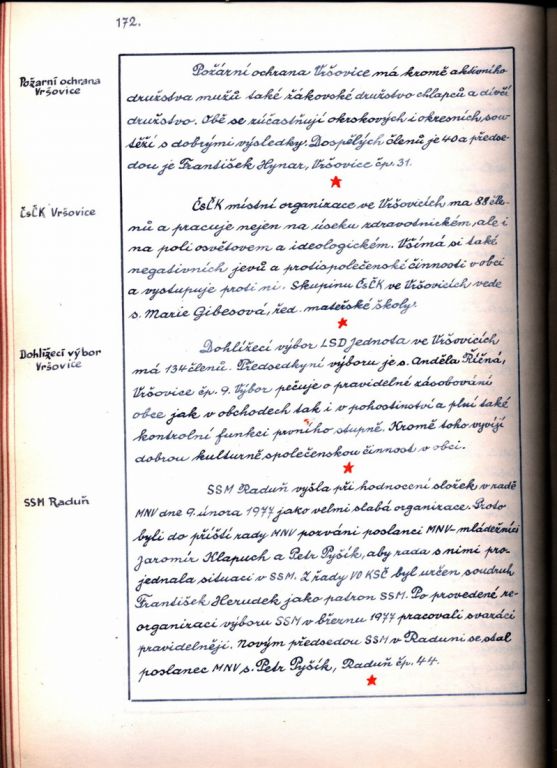 172.
Požarní ochrana
Vršovice
Požární ochrana Vršovice má kromě aktivního
družstva mužů také žákovské družstvo chlapců a dívčí
družstvo. Obě se zúčastňují okrskových i okresních sou-
těží s dobrými výsledky. Dospělých členů je 40 a předse-
dou je František Hynar, Vršovice čp. 31.
ČsČK Vršovice
ČsČK místní organizace ve Vršovicích ma 88 čle-
nů a pracuje nejen na úseku zdravotnickém, ale i
na poli osvětovém a ideologickém. Všímá si také
negativních jevů a protispolečenské činnosti v obci
a vystupuje proti ni. Skupinu ČsČK ve Vršovicích vede
s. Marie Gibesová, řed. mateřské školy.
Dohlížecí výbor
Vršovice
Dohlížecí výbor LSD Jednota ve Vršovicích
má 134 členů. Předsedkyní výboru je s. Anděla Říčná,
Vršovice čp. 9. Výbor pečuje o pravidelné zásobování
obce jak v obchodech tak i v pohostinství a plní také
kontrolní funkci prvního stupně. Kromě toho vyvíjí
dobrou kulturně společenskou činnost v obci.
SSM Raduň
SSM Raduň vyšla při hodnocení složek v radě
MNV dne 9. února 1977 jako velmi slabá organizace. Proto
byli do příští rady MNV pozváni poslanci MNV- mládežníci
Jaromír Klapuch a Petr Pyšík, aby rada s nimi pro-
jednala situaci v SSM. Z řady VO KSČ byl určen soudruh
František Herudek jako patron SSM. Po provedené re-
organizaci výboru SSM v březnu 1977 pracovali svazáci
pravidelněji. Novým předsedou SSM v Raduni se stal
poslanec MNV s. Petr Pyšík, Raduň čp. 44.